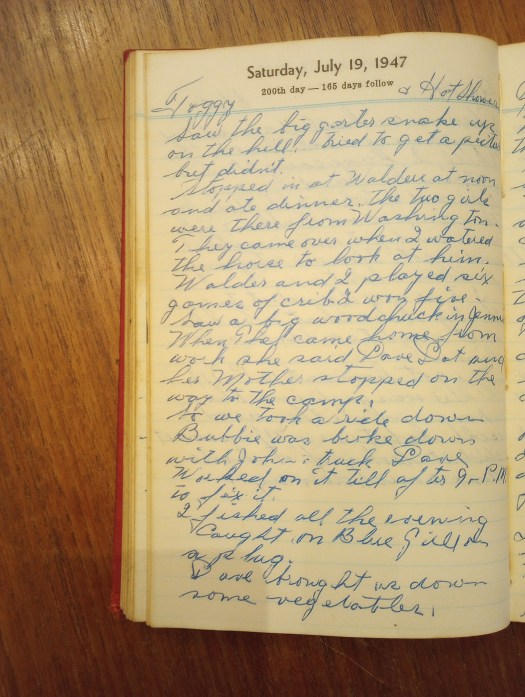 Saturday, July 19, 1947
200th day — 165 days follow
Foggy & Hot Showers
Saw the big garter snake up
on the hill. Tried to get a picture
but didn't.
Stopped in at Walders at noon
and ate dinner. the two girls
were there from Washington.
They came over when I watered
the horse to look at him.
Walder and I played six
games of crib I won five -
Saw a big woodchuck in
When came home from
work she said Dave Dot and
her Mother stopped on the
way to the camp.
So we took a ride down
Bubbie was broke down
with John's truck Dave
Worked on it till after 9 - P.M.
to fix it.
I fished all the evening
Caught on Blue Gill on
a plug.
Dave brought us down
some vegetables.